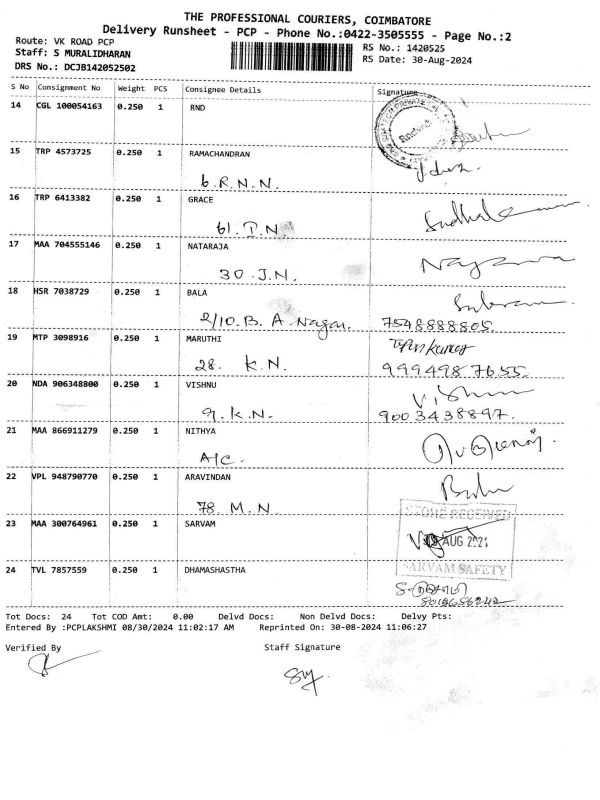 THE PROFESSIONAL COURIERS, COIMBATORE
Delivery Runsheet - PCP - Phone No.:0422-3505555 - Page No.:2
Route: VK ROAD PCP
RS No.: 1420525
Staff: S MURALIDHARAN
RS Date: 30-Aug-2024
DRS No.: DCJB142052502
S No Consignment No Weight PCS Consignee Details Signature
14 CGL 100054163 0.250 1 RND
15 TRP 4573725 0.250 1 RAMACHANDRAN
6.R.N.N.
16 TRP 6413382 0.250 1 GRACE
61. I.N.
17 MAA 704555146 0.250 1 NATARAJA
30 J.N.
18 HSR 7038729 0.250 1 BALA
2/10.B. A. Nagar. 7548888805.
19 MTP 3098916 0.250 1 MARUTHI
28. K.N. 9994987655
20 NDA 906348800 0.250 1 VISHNU Vishnu
9. K.N. 9003438897.
21 MAA 866911279 0.250 1 NITHYA
A/C.
22 VPL 948790770 0.250 1 ARAVINDAN
78. M.N
STORE RECEIVED
23 MAA 300764961 0.250 1 SARVAM
AUG
SARVAM SAFETY
24 TVL 7857559 0.250 1 DHAMASHASTHA
Tot Docs: 24 Tot COD Amt: 0.00 Delvd Docs: Non Delvd Docs: Delvy Pts:
Entered By :PCPLAKSHMI 08/30/2024 11:02:17 AM Reprinted On: 30-08-2024 11:06:27
Verified By Staff Signature